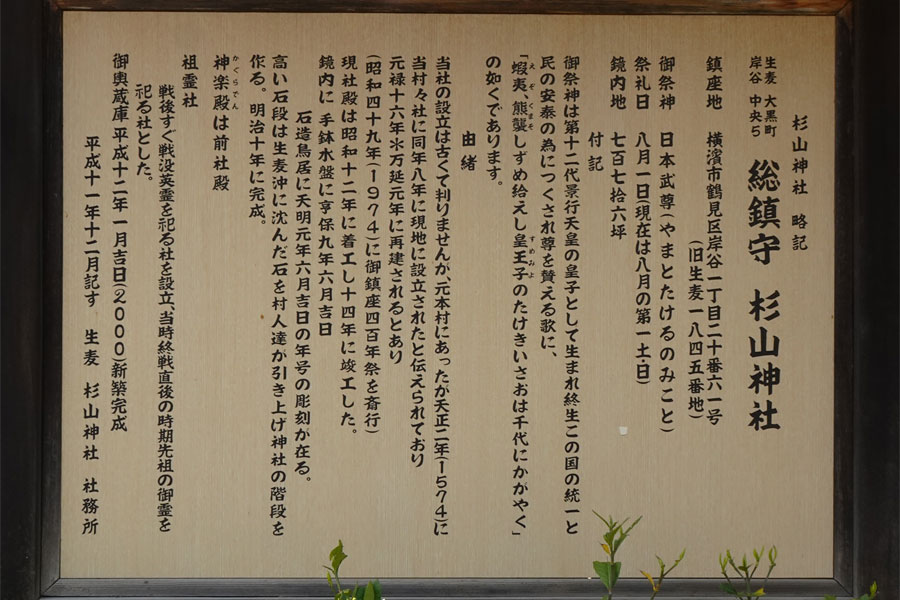 杉山神社 略記
生麦 大黒町
岸谷 中央5
総鎮守 杉山神社
鎮座地 横濱市鶴見区岸谷一丁目二十番六一号
(旧生麦一八四五番地)
御祭神 日本武尊(やまとたけるのみこと)
祭礼日 八月一日(現在は八月の第一土・日)
鏡内地 七百七十六坪
付記
御祭神は第十二代景行天皇の皇子として生まれ終生この国の統一と
民の安泰の為につくされ尊を賛える歌に、
「蝦夷、熊襲しずめ給えし皇王子のたけきいさおは千代にかがやく」
の如くであります。
由緒
当社の設立は古くて判りませんが、元本村にあったが天正二年(1574)に
当村々社に同年八年に現地に設立されたと伝えられており
元禄十六年*万延元年に再建されるとあり
(昭和四十九年(1974)に御鎮座四百年祭を斎行)
現社殿は昭和十二年に着工し十四年に竣工した。
鏡内に 手鉢水盤に亨保九年六月吉日
石造鳥居に天明元年六月吉日の年号の彫刻が在る。
高い石段は生麦沖に沈んだ石を村人達が引き上げ神社の階段を
作る。明治十年に完成。
神楽殿は前社殿
祖霊社
戦後すぐ戦没英霊を祀る社を設立、当時終戦直後の時期先祖の御霊を
祀る社とした。
御輿蔵庫 平成十二年一月吉日(2000)新築完成
平成十一年十二月記す 生麦 杉山神社 社務所